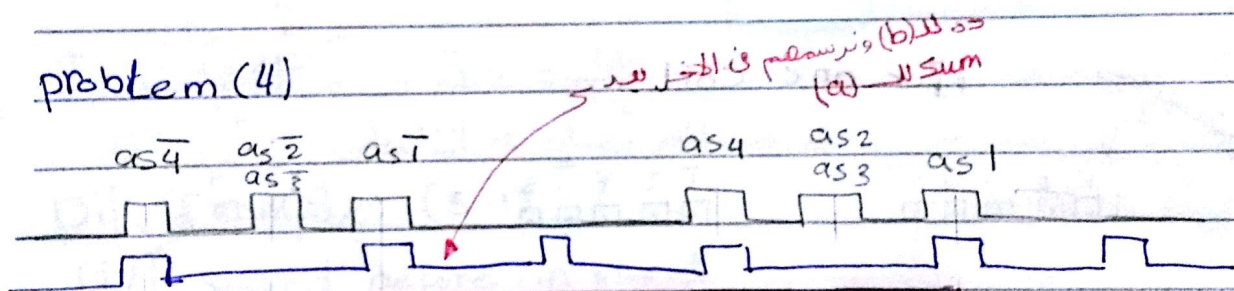 problem (4)
ده لل (b) ونرسمهم فى الاخر بعد
الـ sum لل (a)
as4̅ as2̅ as1̅ as4 as2 as1
as3̅ as3